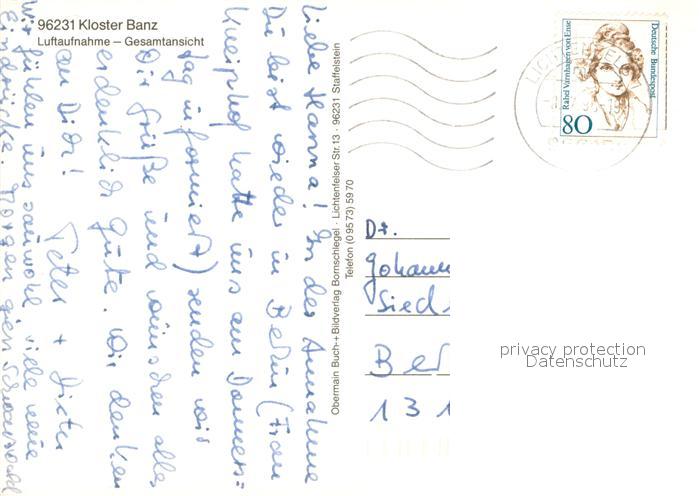 96231 Kloster Banz
Luftaufnahme – Gesamtansicht
Liebe Hanna! In der Annahme
Du bist wieder in Berlin (Frau
Kneiphof hatte uns am Donners=
tag informiert) senden wir
Dir Grüße und wünschen alles
erdenklich Gute. Wir denken
an Dich!
Peter + Dieter
Wir fühlen uns sauwohl, viele neue
Eindrücke. Morgen gen Schwarzwald
Obermain Buch-+ Bildverlag Bornschlegel · Lichtenfelser Str. 13 · 96231 Staffelstein
Telefon (0 95 73) 59 70
Deutsche Bundespost
Rahel Varnhagen von Ense
80
Dr.
Johann
Sied
Ber
131
privacy protection
Datenschutz